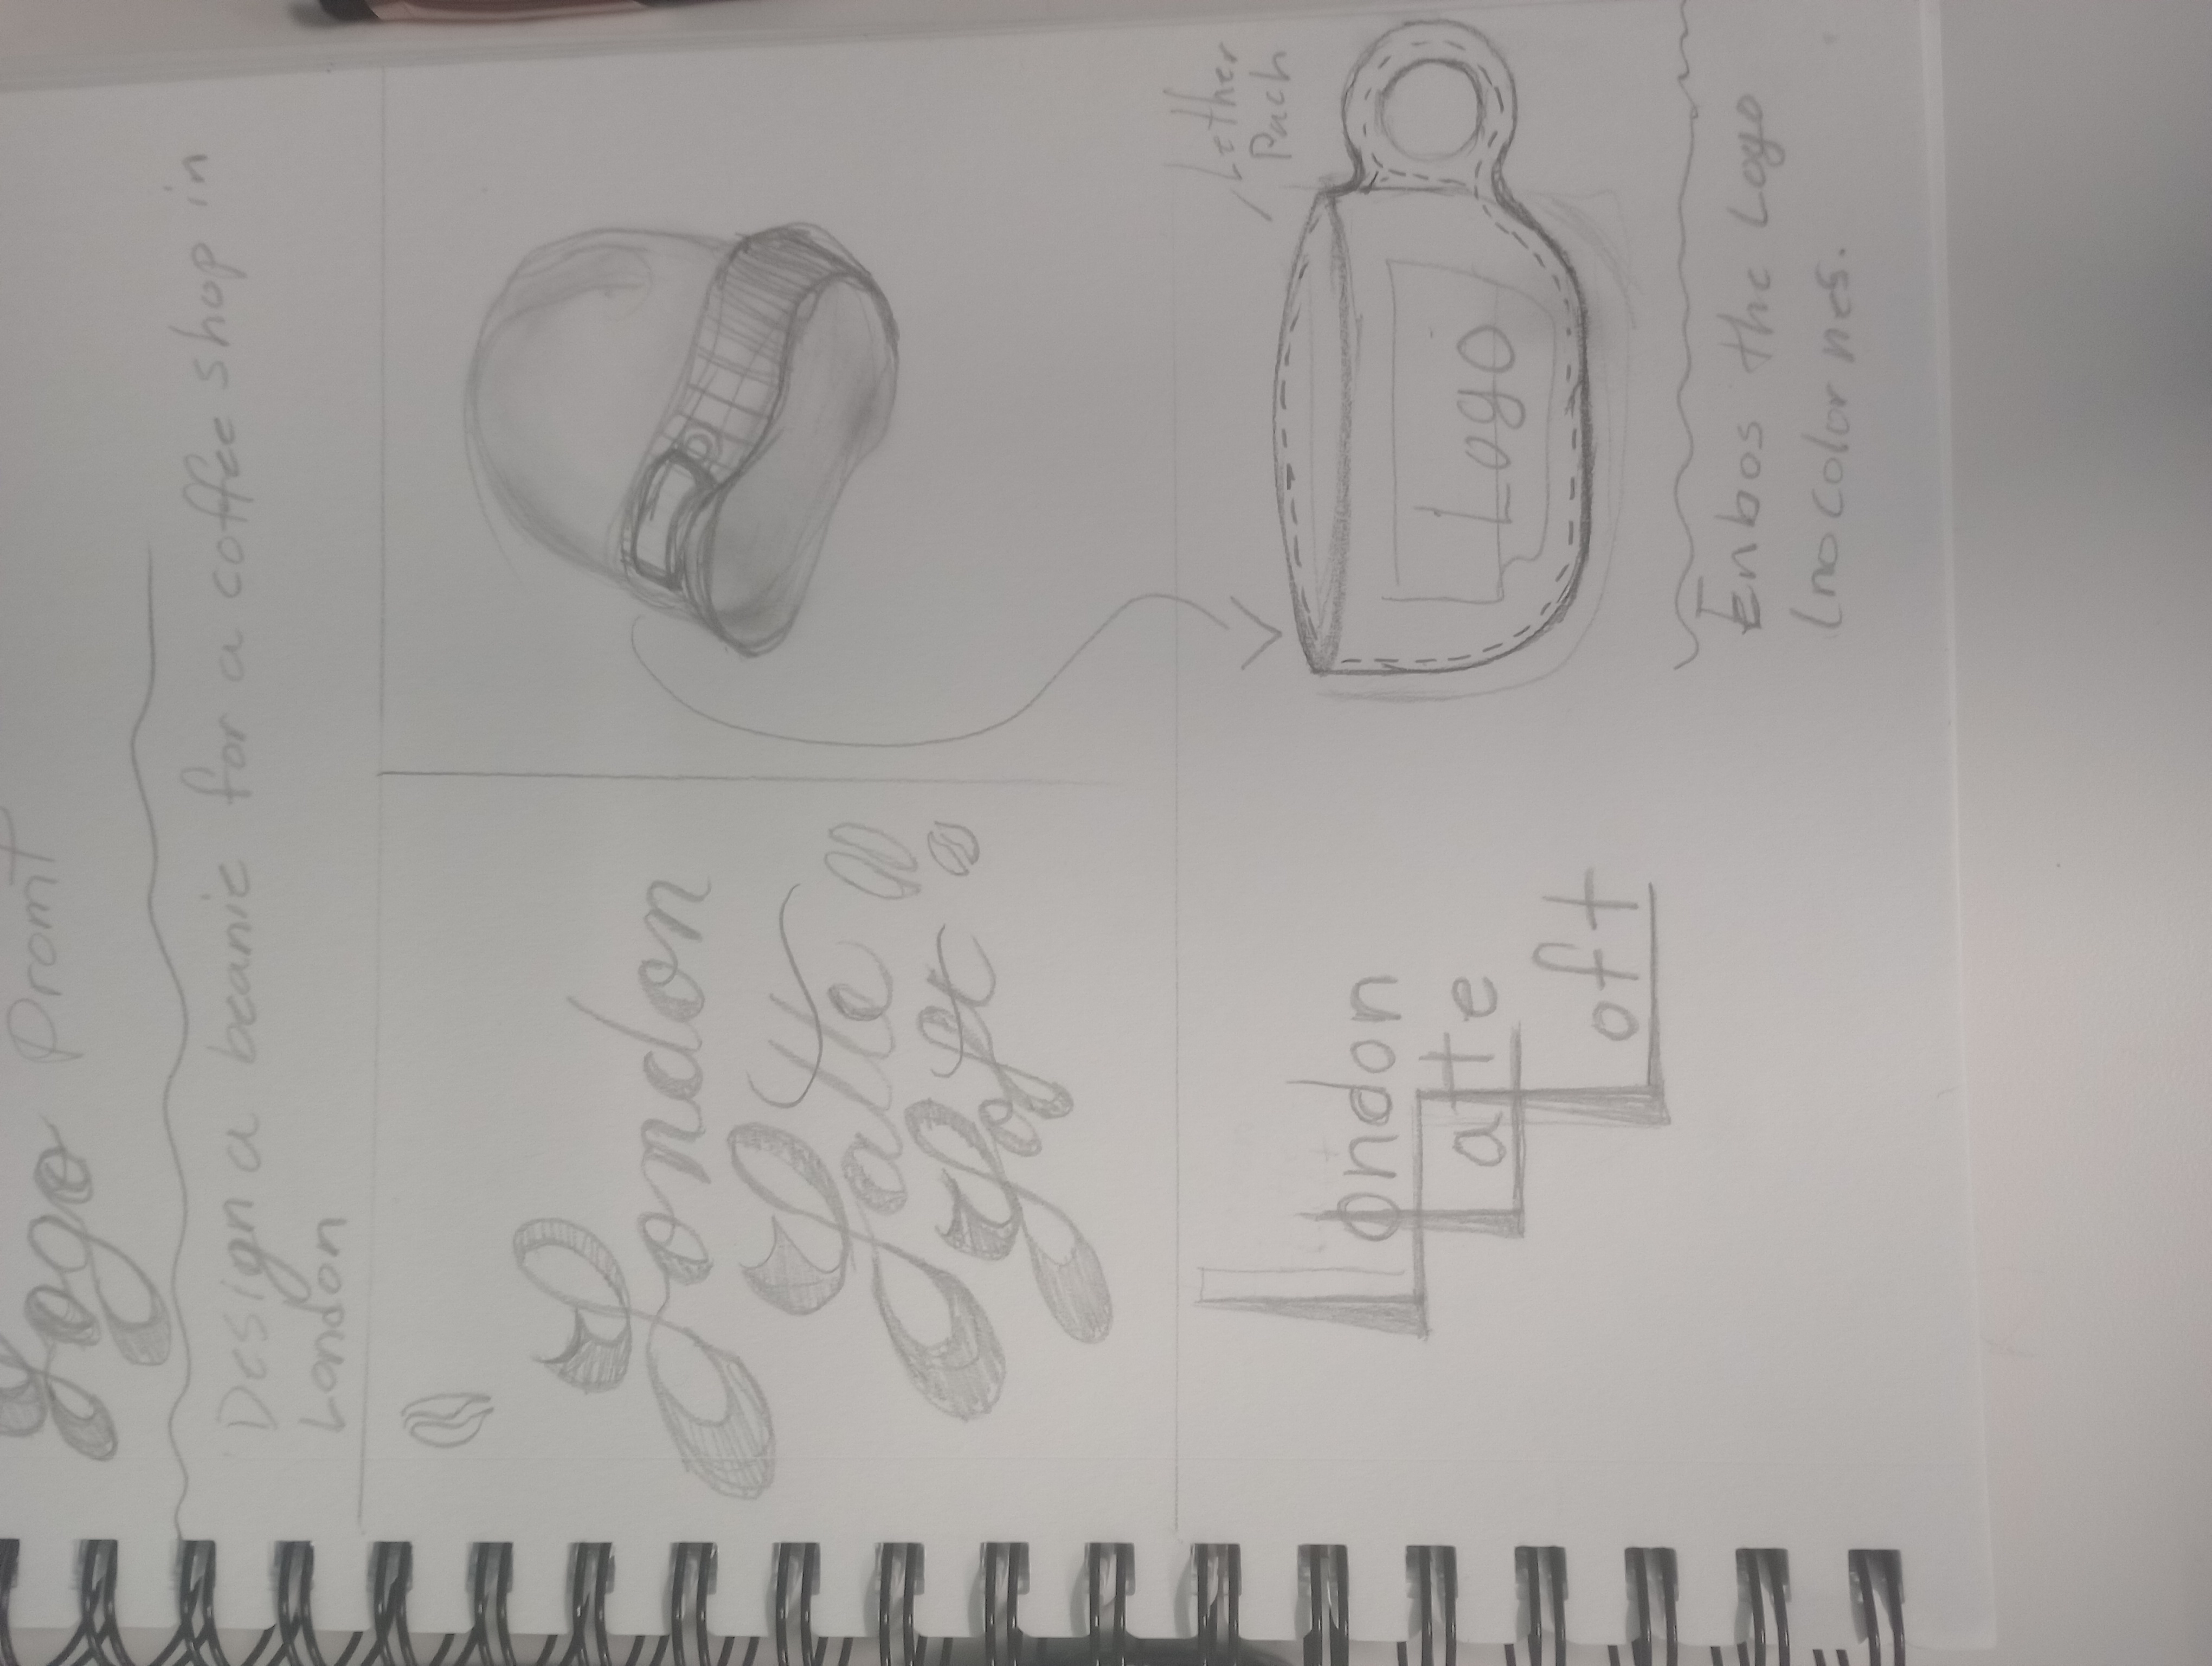 Logo Promt
Design a beanie for a coffee shop in
London
London
Latte
Loft
London
Latte
Loft
Lether
Pach
Logo
Enbos the Logo
(no color nes.